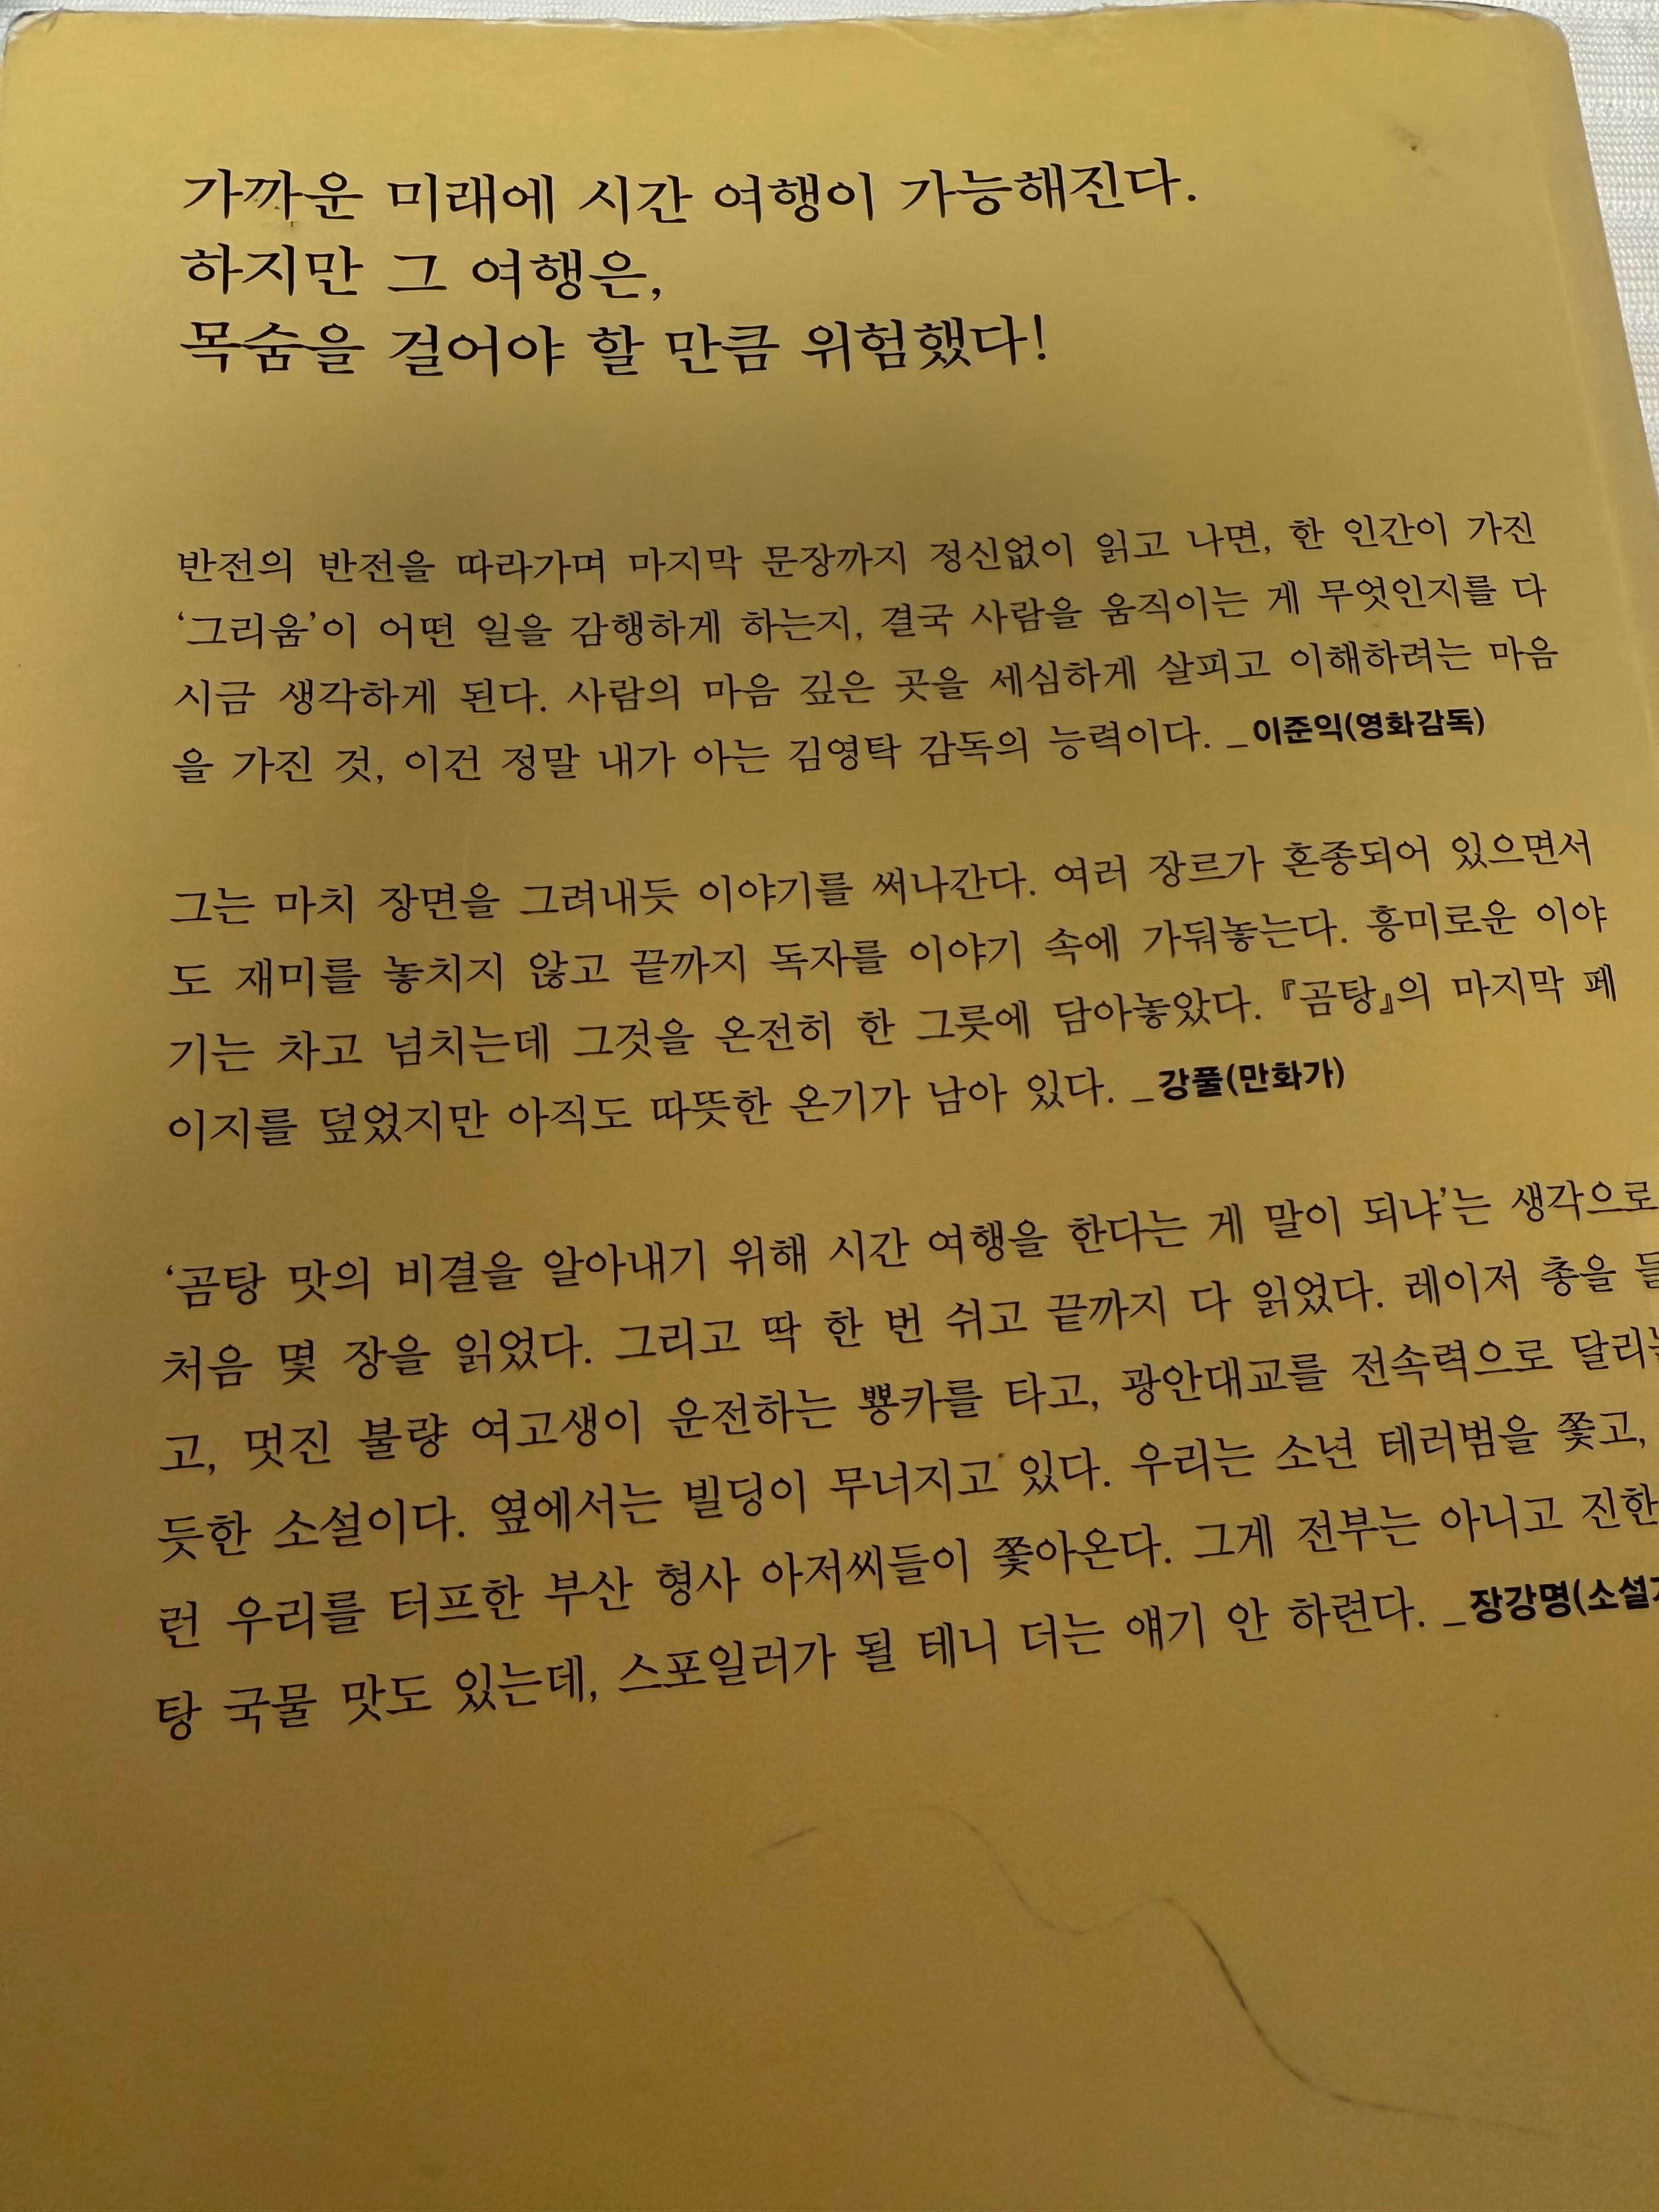 가까운 미래에 시간 여행이 가능해진다.
하지만 그 여행은,
목숨을 걸어야 할 만큼 위험했다!
반전의 반전을 따라가며 마지막 문장까지 정신없이 읽고 나면, 한 인간이 가진
‘그리움’이 어떤 일을 감행하게 하는지, 결국 사람을 움직이는 게 무엇인지를 다
시금 생각하게 된다. 사람의 마음 깊은 곳을 세심하게 살피고 이해하려는 마음
을 가진 것, 이건 정말 내가 아는 김영탁 감독의 능력이다. _이준익(영화감독)
그는 마치 장면을 그려내듯 이야기를 써나간다. 여러 장르가 혼종되어 있으면서
도 재미를 놓치지 않고 끝까지 독자를 이야기 속에 가둬놓는다. 흥미로운 이야
기는 차고 넘치는데 그것을 온전히 한 그릇에 담아놓았다. 『곰탕』의 마지막 페
이지를 덮었지만 아직도 따뜻한 온기가 남아 있다. _강풀(만화가)
‘곰탕 맛의 비결을 알아내기 위해 시간 여행을 한다는 게 말이 되냐’는 생각으로
처음 몇 장을 읽었다. 그리고 딱 한 번 쉬고 끝까지 다 읽었다. 레이저 총을
고, 멋진 불량 여고생이 운전하는 뿅카를 타고, 광안대교를 전속력으로
듯한 소설이다. 옆에서는 빌딩이 무너지고 있다. 우리는 소년 테러범을 쫓고,
런 우리를 터프한 부산 형사 아저씨들이 쫓아온다. 그게 전부는 아니고 진한
탕 국물 맛도 있는데, 스포일러가 될 테니 더는 얘기 안 하련다. _장강명